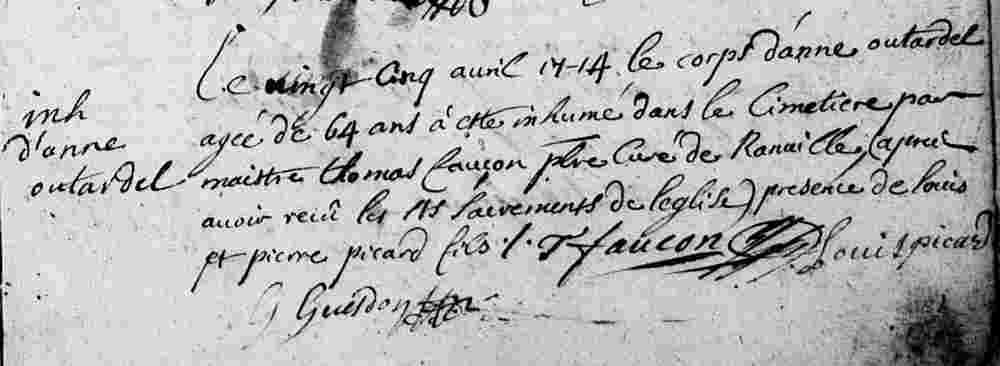 inh
d'anne
outardel
Le vingt Cinq auril 1714 le corps d'anne outardel
ageé de 64 ans à esté inhumé dans le Cimetiere par
maistre thomas faucon pbre Curé de Ranuille, (apres
auoir receu les sts sacrements de leglise) presence de louis
et pierre picard fils T faucon Louis picard
G Guesdon